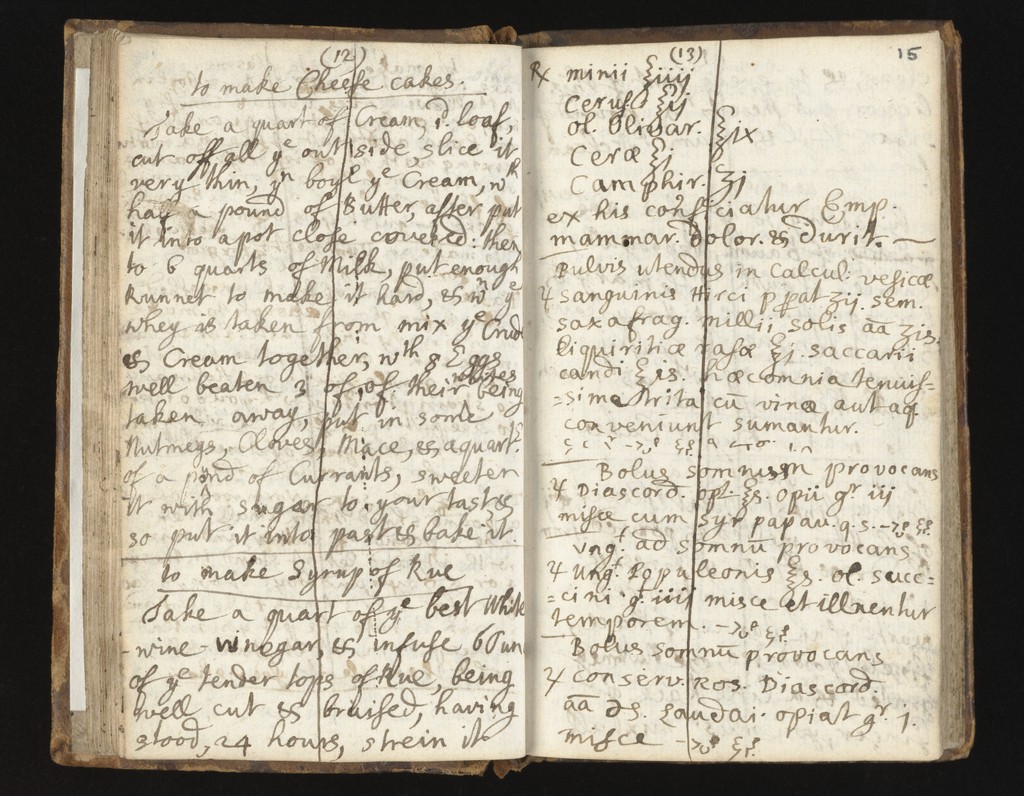 (12)
to make Cheese cakes.
Take a quart of Cream, 1d. loaf,
cut off all ye out side, slice it
very thin, yn boyl ye Cream, wth
half a pound of Butter, after put
it into a pot close covered: then
to 6 quarts of Milk, put enough
Runnet to make it hard, & wn ye
whey is taken from mix ye Crud
& Cream together, wth 8 Eggs
well beaten 3 of, of their whites being
taken away, put in some
Nutmegs, Cloves, Mace, & a quartr
of a pond of Currants, sweeten
it with sugar to your tast &
so put it into past & bake it.
to make Syrup of Rue
Take a quart of ye best White
-wine-winegar, & infuse 6 oun
of ye tender tops of Rue, being
well cut & bruised, having
stood, 24 hours, strein it
(13)
15
℞ minii ℥iiij
Ceruss ℥ij
ol. Olivar. ℥ix
Ceræ ℥j
Camphir. ℥j
ex his confficiatur Emp.
mammar. dolor. & durit. —
Pulvis utendus in Calcul: vesicæ
♃ sanguinis Hirci ppat ʒij. sem.
saxafrag. millii solis āā ʒis.
liquiritiæ rasæ ℥j. saccarii
candi ℥ss. hæc omnia tenuis-
=sima trita cū vino, aut aq.
conveniunt sumantur.
Bolus somnum provocans
♃ Diascord. opt ℥s. opii gr iii
misce cum syr papau. q.s.
Vngt ad somnū provocans
♃ Ungt. Populeonis ℥s. ol. succ=
=cini g. iiij misce et illinentur
temporem.
Bolus somnū provocans
♃ conserv. Ros. Diascord.
āā ʒs. Laudai. opiat gr j.
misce